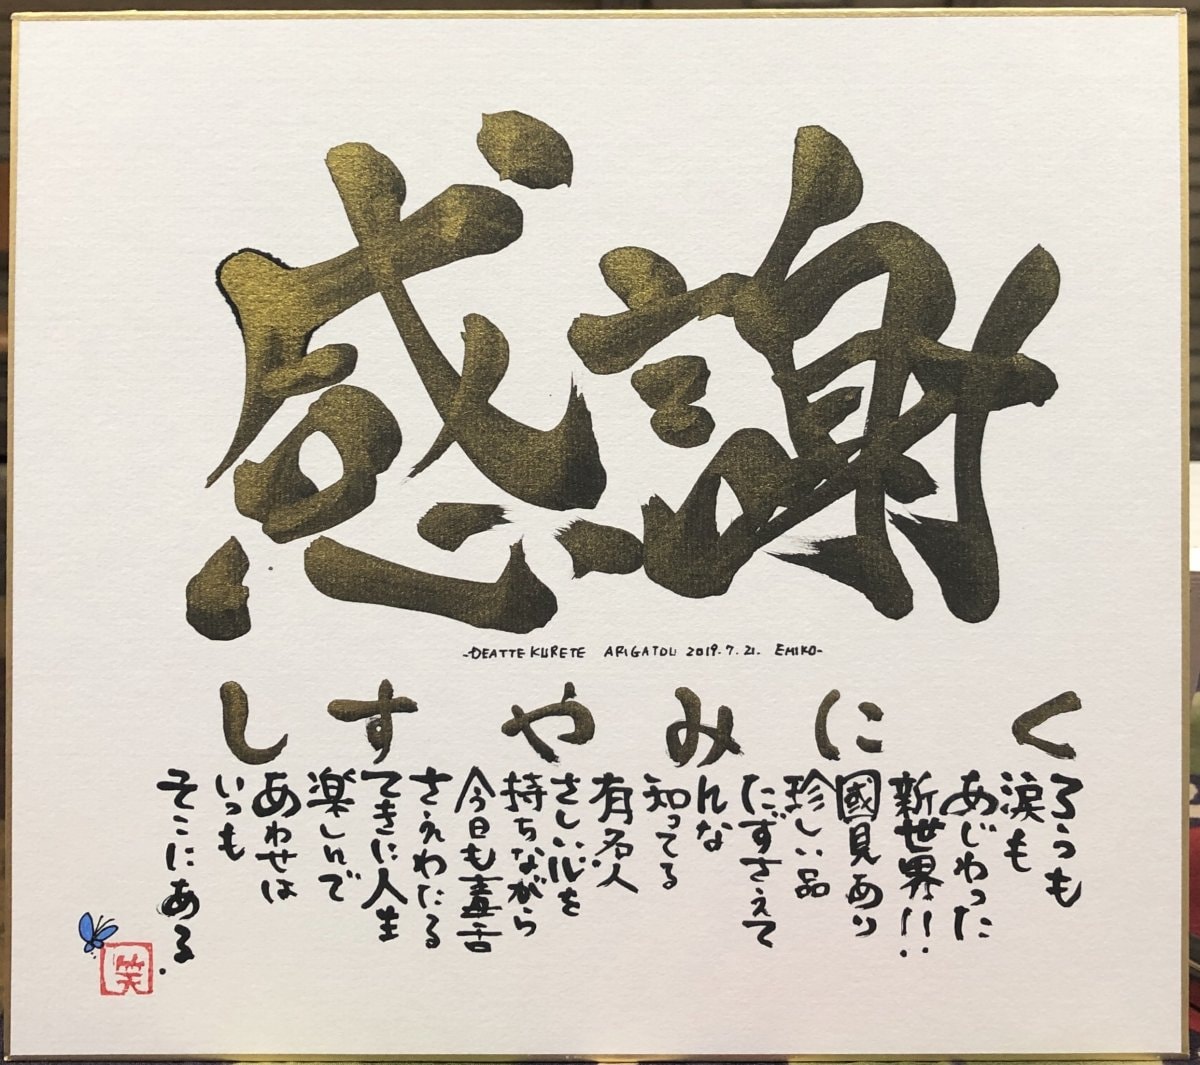 感謝
-DEATTE KURETE ARIGATOU 2019.7.21. EMIKO-
くにみやすし
ろうも
涙も
あじわった
新世界!!
國見あり
珍しい品
たずさえて
んな
知ってる
有名人
さしい心を
持ちながら
今日も毒舌
さえわたる
てきに人生
楽しんで
あわせは
いつも
そこにある.
笑